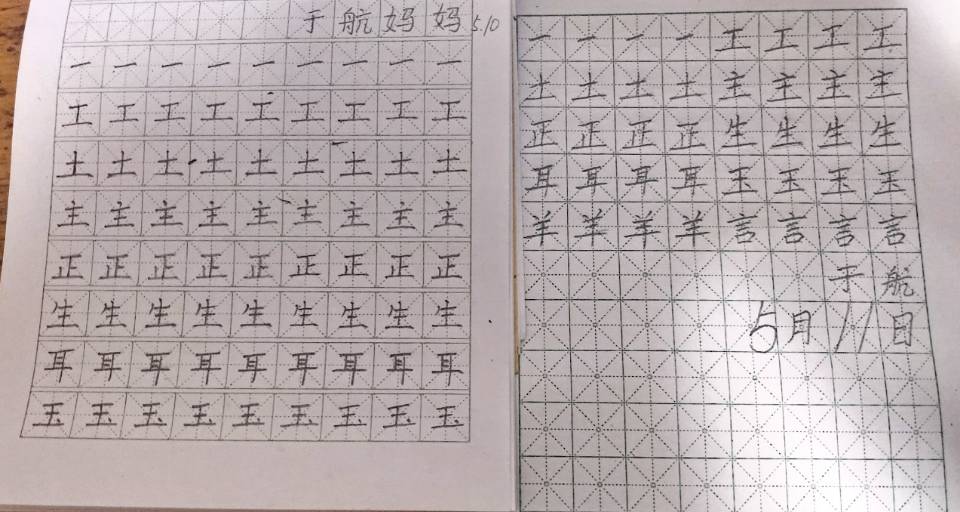 于航妈妈5.10
一一一一一一一一一
工工工工工工工工工
土土土土土土土土土
主主主主主主主主主
正正正正正正正正正
生生生生生生生生生
耳耳耳耳耳耳耳耳耳
玉玉玉玉玉玉玉玉玉
一一一一工工工工
土土土土主主主主
正正正正生生生生
耳耳耳耳玉玉玉玉
羊羊羊羊言言言言
于航
5月11日